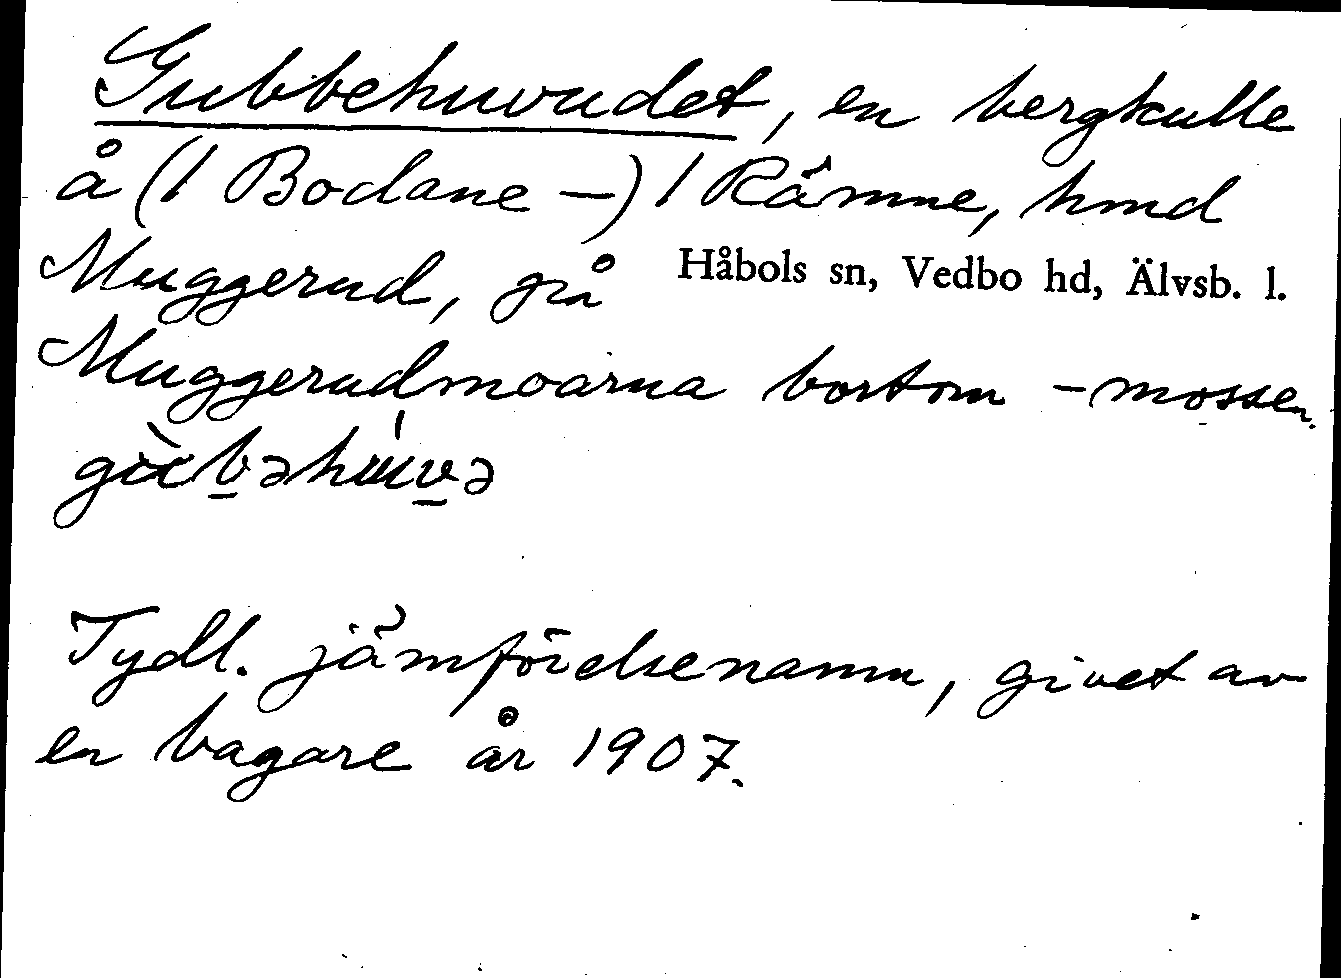 Gubbehuvudet, en bergkulle
å (1 Bodane –) 1 Rämne, hmd
Muggerud, på Håbols sn, Vedbo hd, Älvsb. l.
Muggerudmoarna bortom – mossen.
Tydl. jämförelsenamn, givet av
en bagare år 1907.